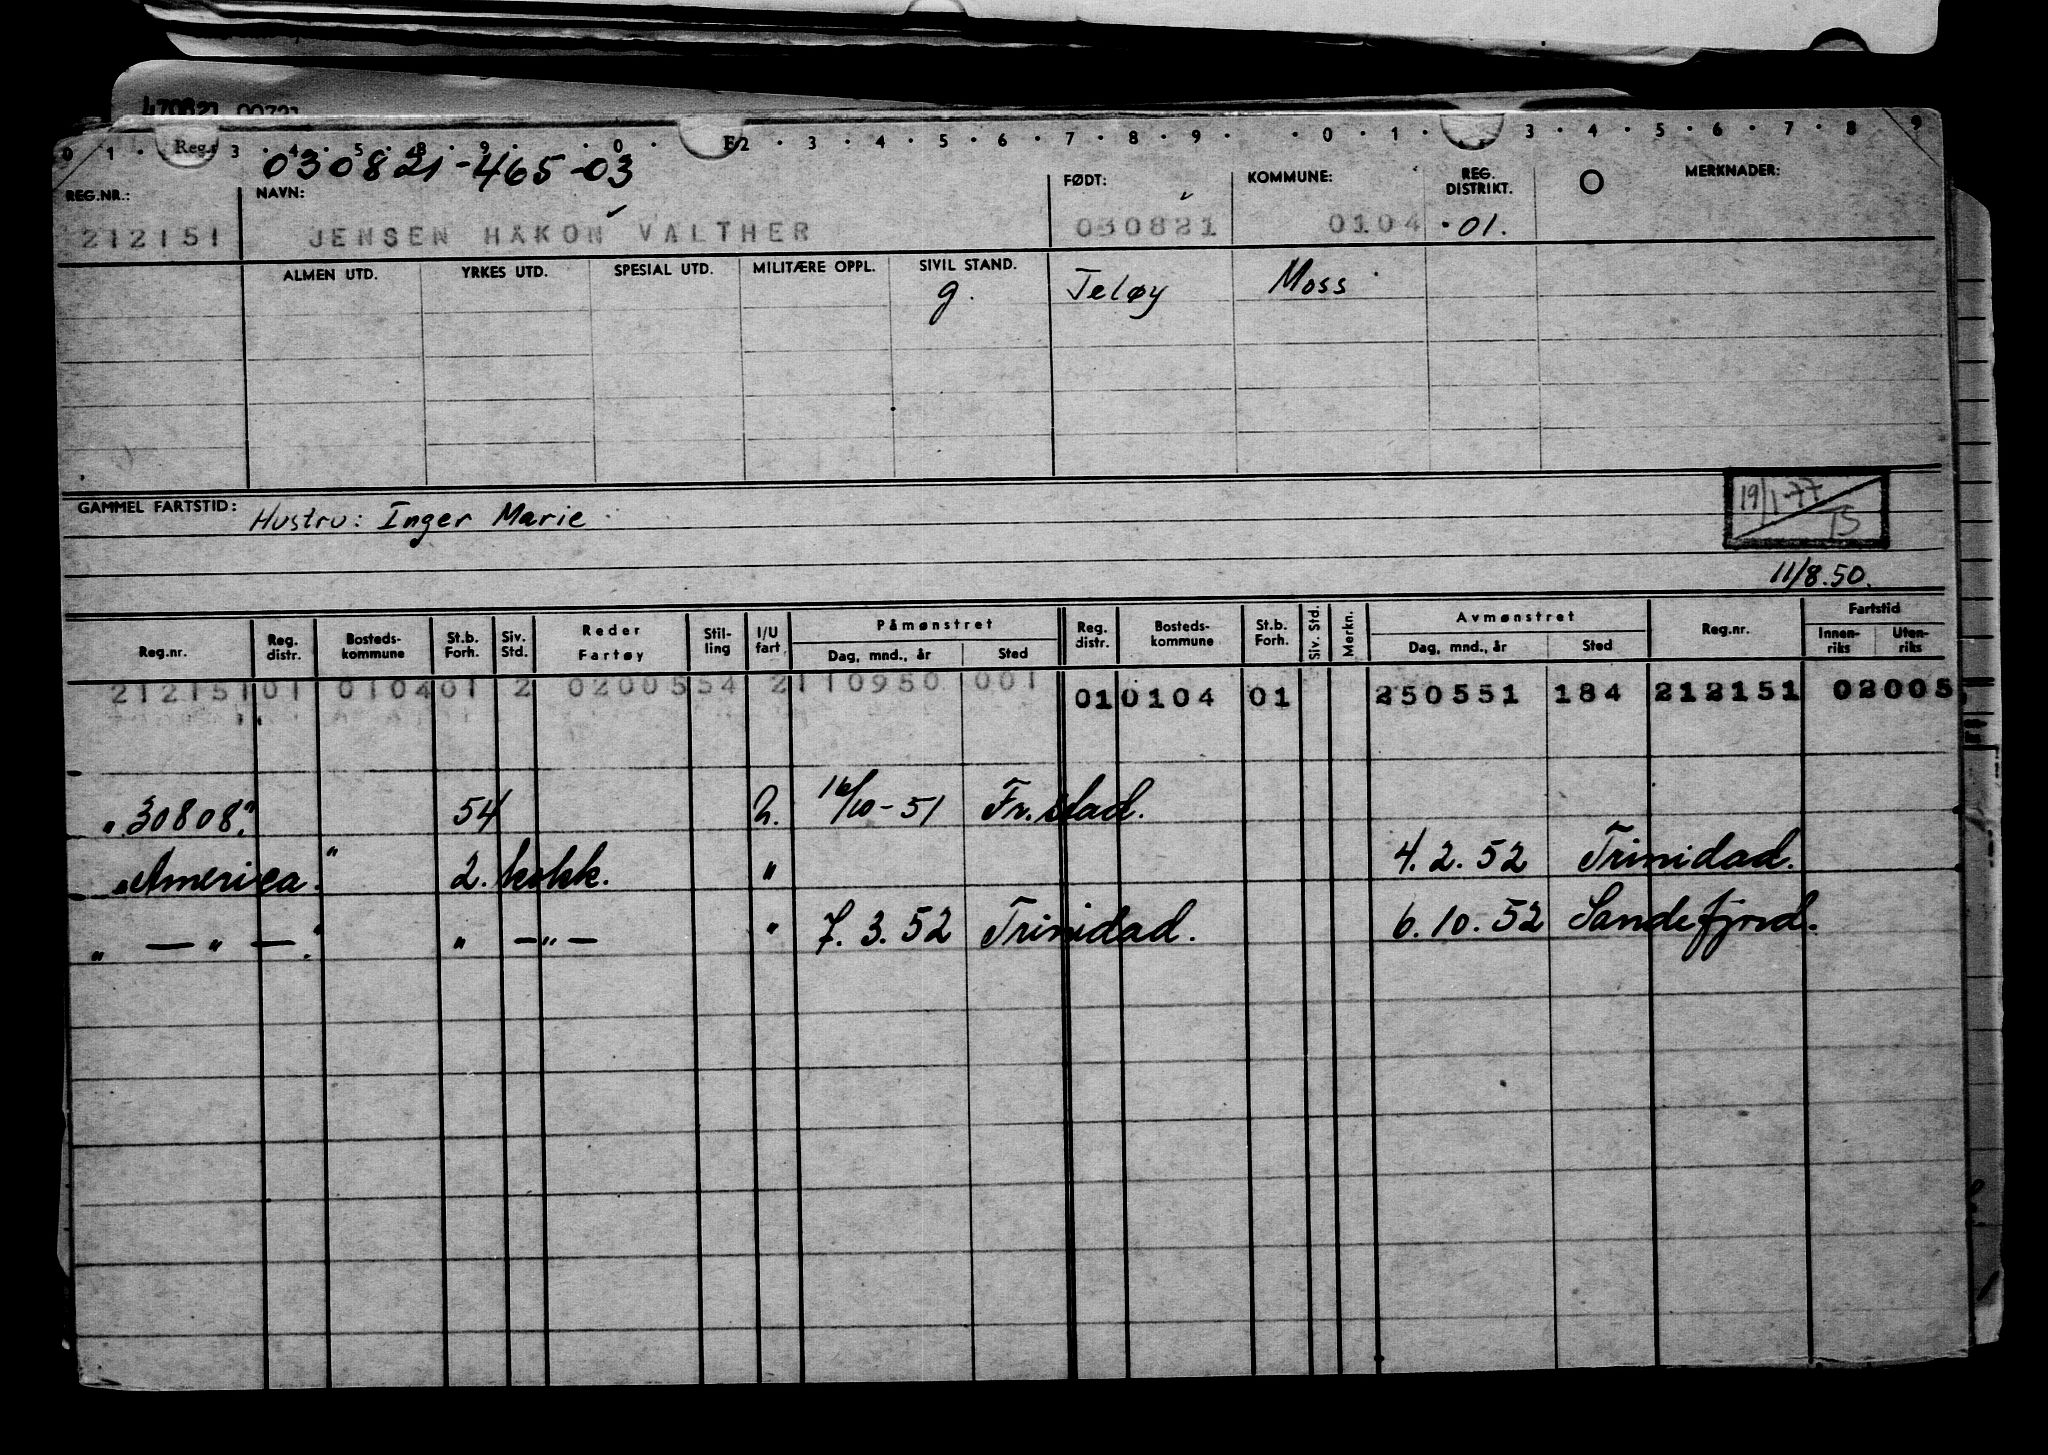 470821 00721
0 1 . Reg. 3 . 4 . 5 . 8 . 9 . . 0 . F2 . 3 . 4 . 5 . 6 . 7 . 8 . 9 . . 0 . 1 . 3 . 4 . 5 . 6 . 7 . 8 9
030821-465-03
REG.NR.: NAVN: FØDT: KOMMUNE: REG. DISTRIKT. O MERKNADER:
212151 JENSEN HAKON VALTHER 030821 0104 01.
ALMEN UTD. YRKES UTD. SPESIAL UTD. MILITÆRE OPPL. SIVIL STAND.
g. Jeløy Moss
GAMMEL FARTSTID: Hustru: Inger Marie
19/1-77
15
11/8.50.
Reg.nr. Reg. distr. Bosteds-kommune St.b. Forh. Siv. Std. Reder Fartøy Stil-ling I/U fart Påmønstret Reg. distr. Bosteds-kommune St.b. Forh. Siv. Std. Merkn. Avmønstret Reg.nr. Fartstid
Dag, mnd., år Sted Dag, mnd., år Sted Innen-riks Uten-riks
212151 01 0104 01 2 0200554 2 110950 001 01 0104 01 250551 184 212151 02005
"30808." 54 2. 16/10-51 Fr.stad.
"America." 2. kokk. " 4.2.52 Trinidad.
" — " — " " — " — " 7.3.52 Trinidad. 6.10.52 Sandefjord.